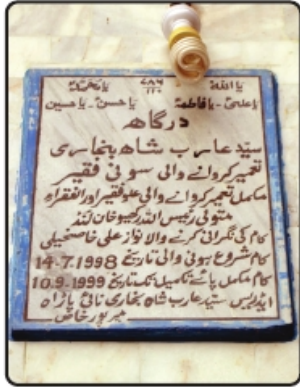 یا اللہ ۷۸۶ یا محمد
۱۱۰
یا علی - یا فاطمہ یا حسن - یا حسین
درگاھ
سید عارب شاھ بخاری
تعمیر کروانے والی سونی فقیر
مکمل تعمیر کروانے والی علو فقیر اور الفقراہ
متولی رئیس اللہ رکھیو خان لنڈ
کام کی نگرانی کرنے والا نواز علی خاصخیلی
کام شروع ہونی والی تاریخ 14.7.1998
کام مکمل پائے تکمیل تک تاریخ 10.9.1999
ایڈریس سید عارب شاہ بخاری نائی پاڑاہ
میرپورخاص